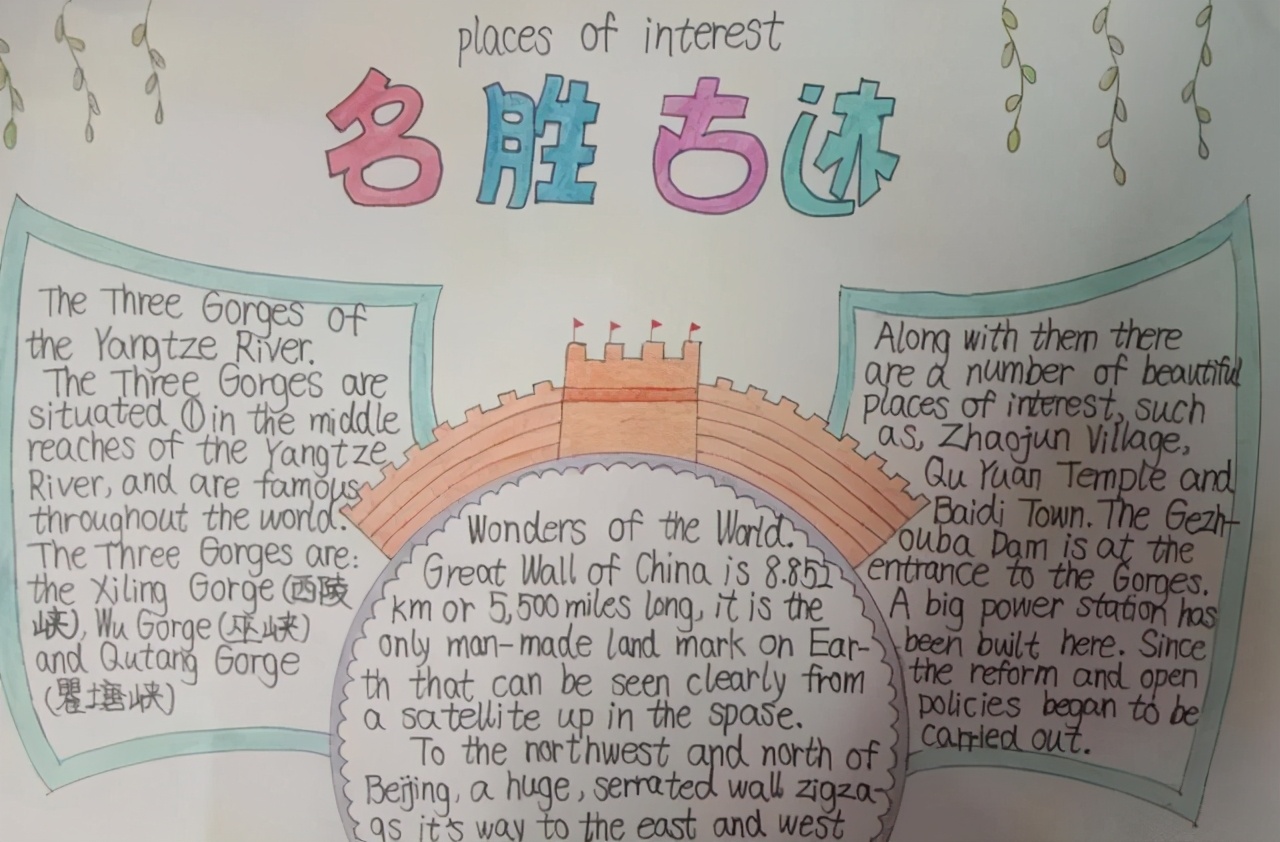 places of interest
名胜古迹
The Three Gorges of
the Yangtze River.
The Three Gorges are
situated ①in the middle
reaches of the Yangtze
River, and are famous
throughout the world.
The Three Gorges are:
the Xiling Gorge(西陵
峡), Wu Gorge(巫峡)
and Qutang Gorge
(瞿塘峡)
Wonders of the World.
Great Wall of China is 8.852
km or 5,500 miles long, it is the
only man-made land mark on Ear-
th that can be seen clearly from
a satellite up in the spase.
To the northwest and north of
Beijing, a huge, serrated wall zigza-
gs it's way to the east and west
Along with them there
are a number of beautiful
places of interest, such
as, Zhaojun Village,
Qu Yuan Temple and
Baidi Town. The Gezh-
ouba Dam is at the
entrance to the Gorges.
A big power station has
been built here. Since
the reform and open
policies began to be
carried out.